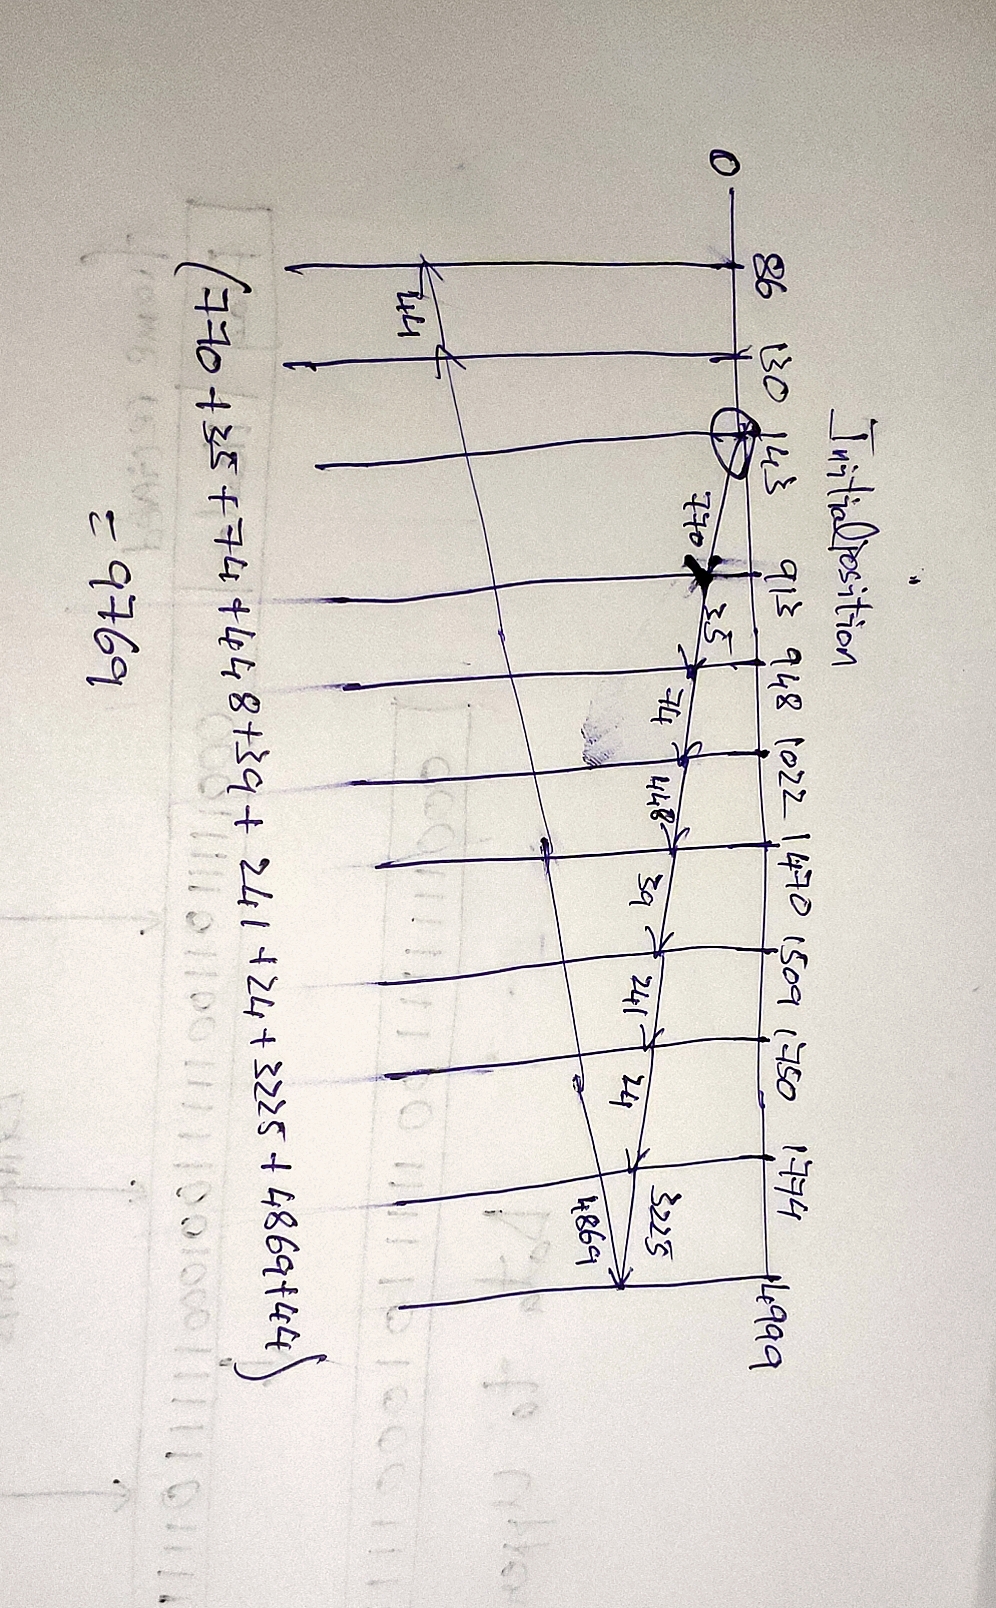 Initial position
0 86 130 143 913 948 1022 1470 1509 1750 1774 4999
770 35 74 448 39 241 24 3225
44 4869
(770+35+74+448+39+241+24+3225+4869+44)
= 9769